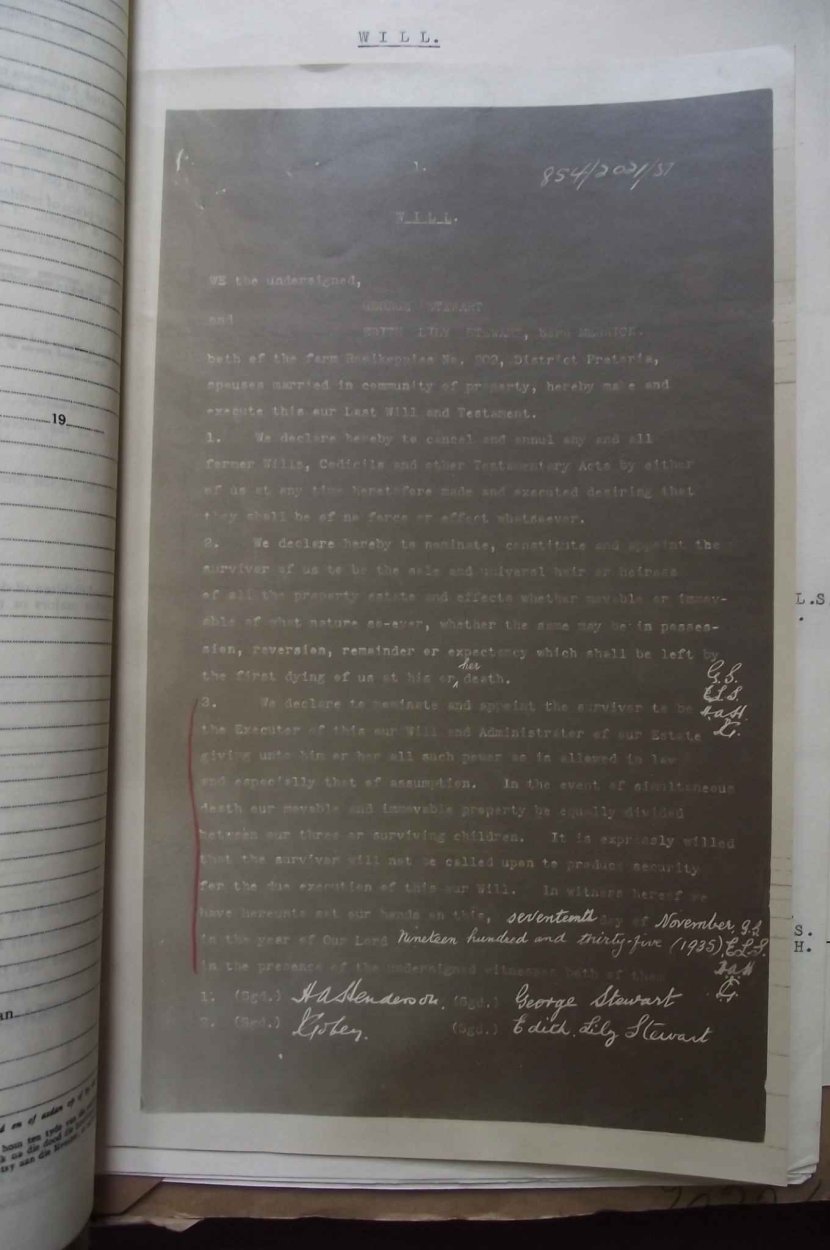 WILL.
1.
854/2021/37
WILL.
WE the undersigned,
GEORGE STEWART
and
EDITH LILY STEWART, born
both of the farm No. 902, District Pretoria,
spouses married in community of property, hereby make and
execute this our Last Will and Testament.
1. We declare hereby to cancel and annul any and all
former Wills, Codicils and other Testamentary Acts by either
of us at any time heretofore made and executed desiring that
they shall be of no force or effect whatsoever.
2. We declare hereby to nominate, constitute and appoint the
survivor of us to be the sole and universal heir or heiress
of all the property estate and effects whether movable or immov-
able of what nature so-ever, whether the same may be in posses-
sion, reversion, remainder or expectancy which shall be left by
her
the first dying of us at his or death.
G.S.
E.L.S.
H.a.H.
3. We declare to nominate and appoint the survivor to be
the Executor of this our Will and Administrator of our Estate
giving unto him or her all such power as is allowed in law
and especially that of assumption. In the event of simultaneous
death our movable and immovable property be equally divided
between our three or surviving children. It is expressly willed
that the survivor will not be called upon to produce security
for the due execution of this our Will. In witness hereof we
have hereunto set our hands on this, seventeenth day of November G.S.
in the year of Our Lord Nineteen hundred and thirty-five (1935) E.L.S.
H.a.H
in the presence of the undersigned witnesses both of them
1. (Sgd.) H A Henderson. (Sgd.) George Stewart
2. (Sgd.) (Sgd.) Edith Lily Stewart
19
L.S
.
S.
H.
an